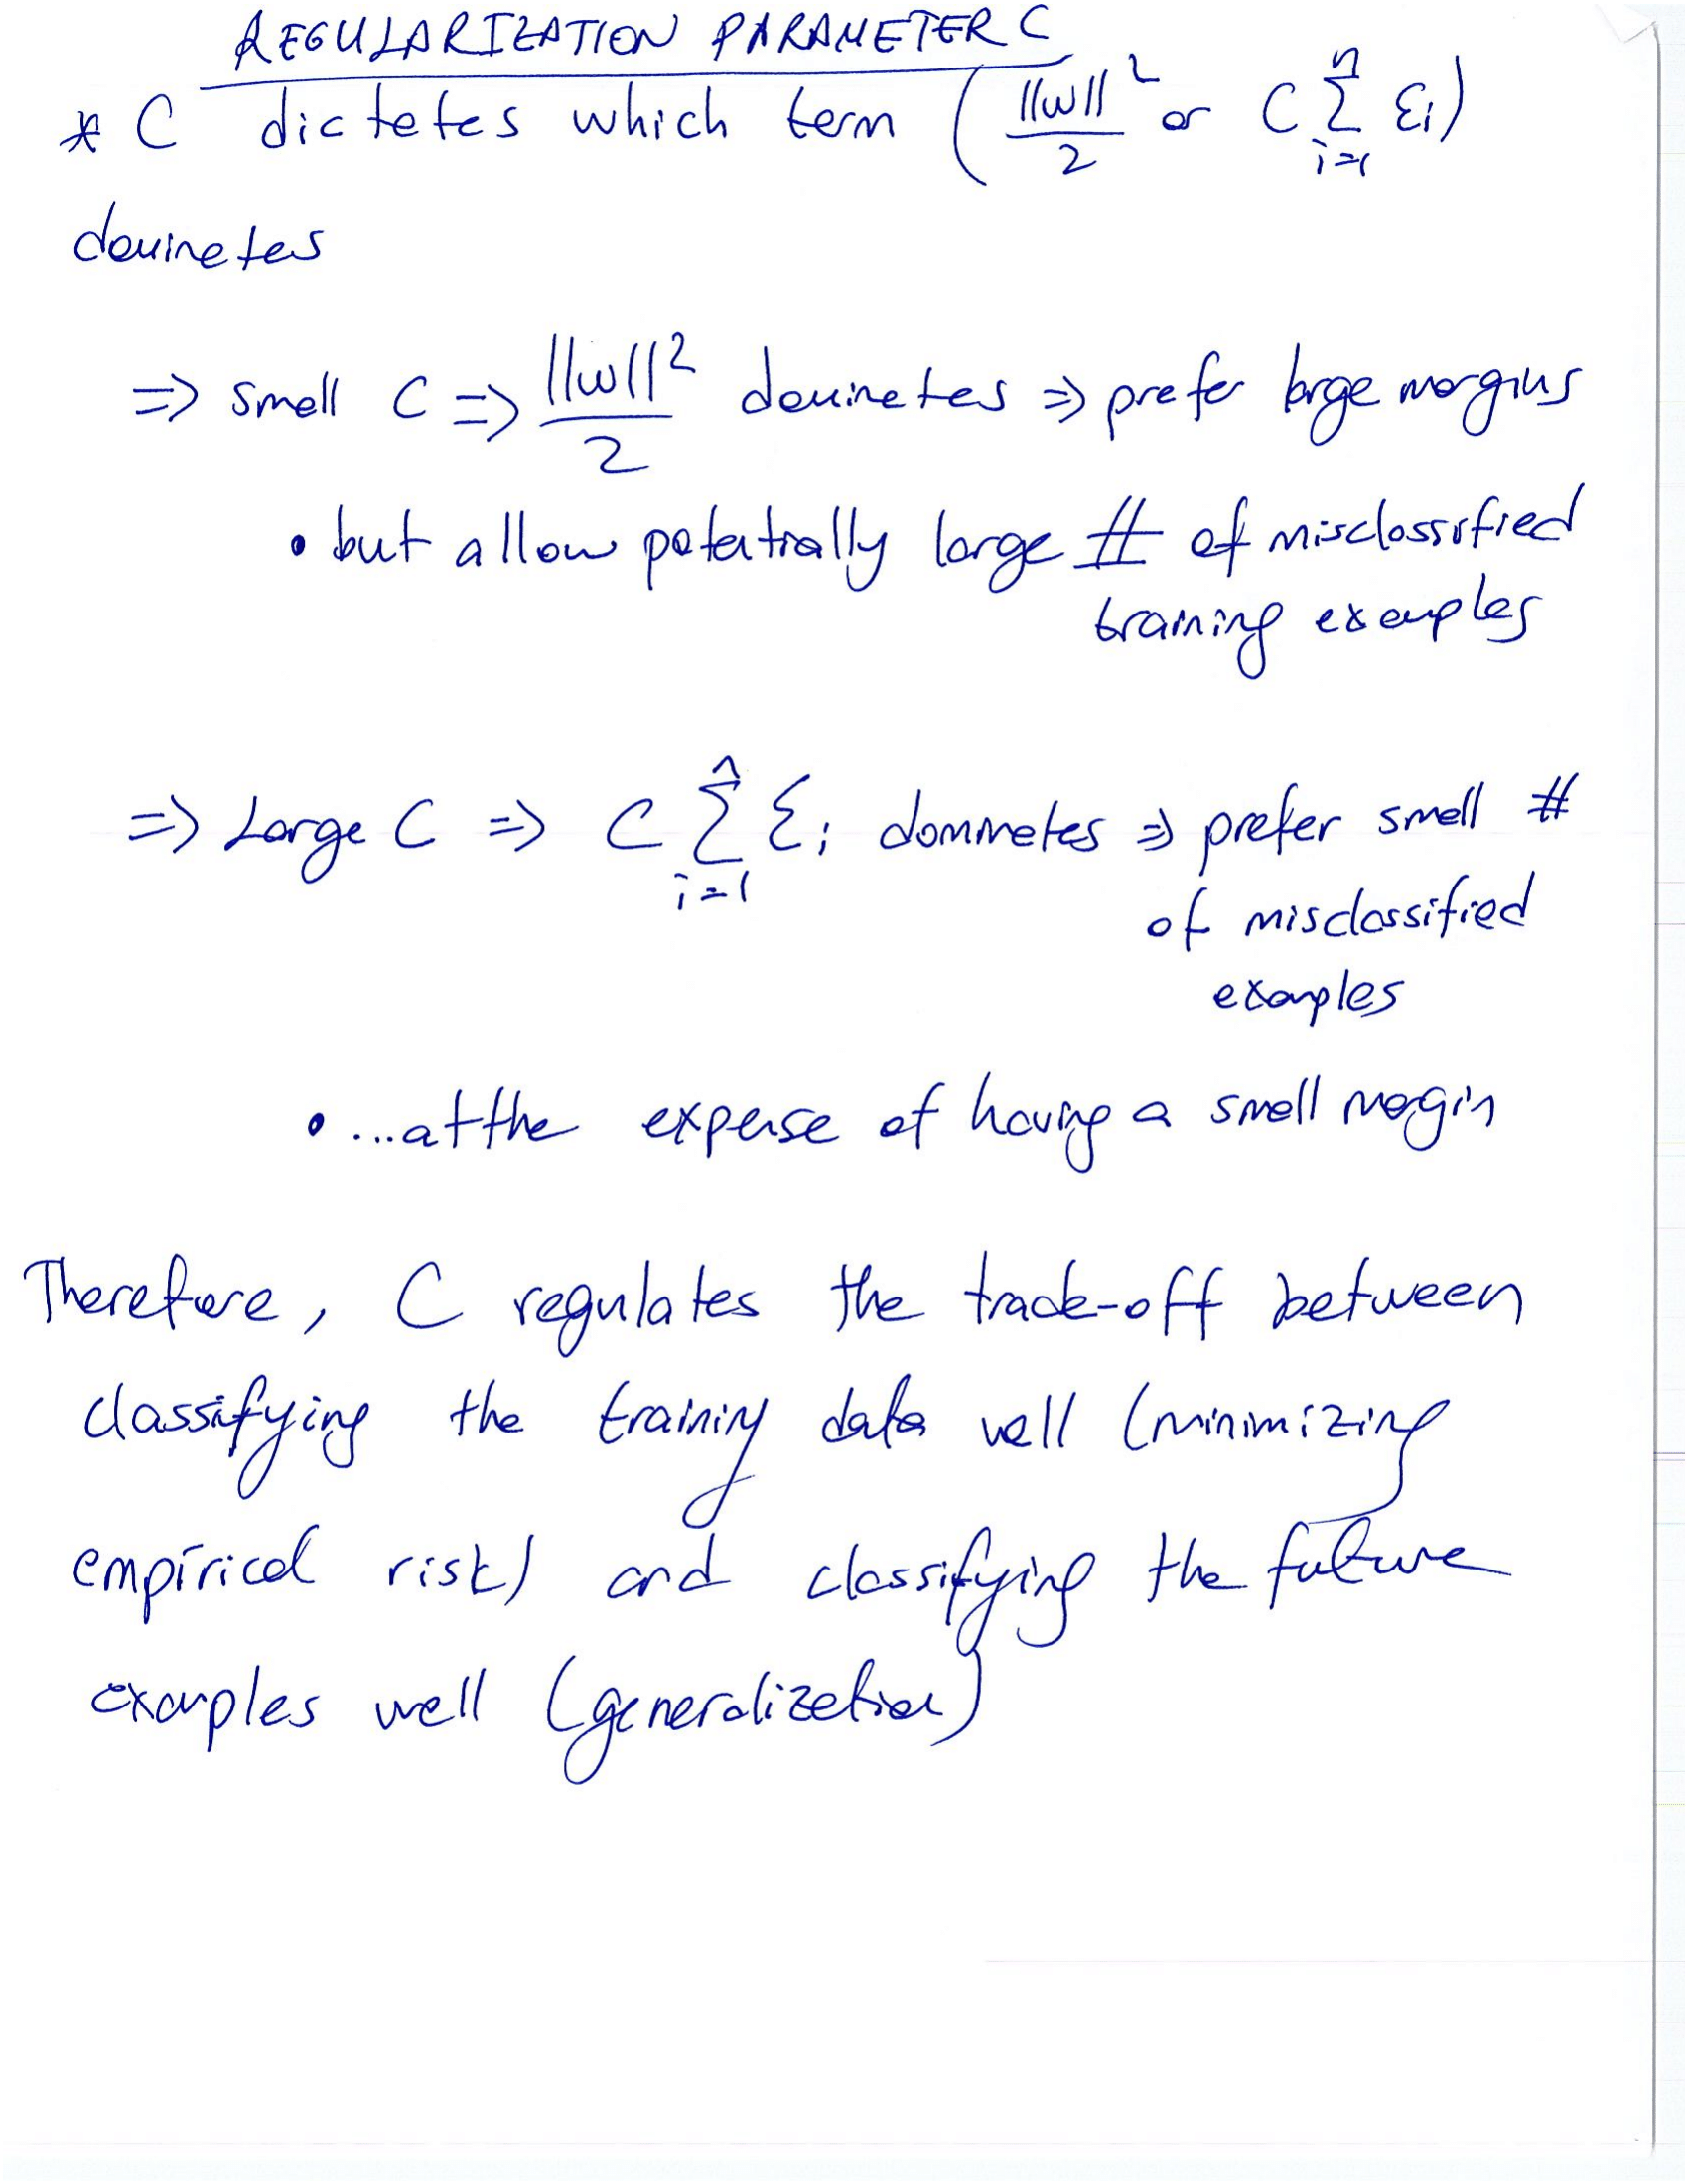 REGULARIZATION PARAMETER C
* C dictates which term (||w||²/2 or C Σ_{i=1}^{n} ξi)
dominates
=> small C => ||w||²/2 dominates => prefer large margins
• but allow potentially large # of misclassified
training examples
=> Large C => C Σ_{i=1}^{n} ξi dominates => prefer small #
of misclassified
examples
• ...at the expense of having a small margin
Therefore, C regulates the trade-off between
classifying the training data well (minimizing
empirical risk) and classifying the future
examples well (generalization)